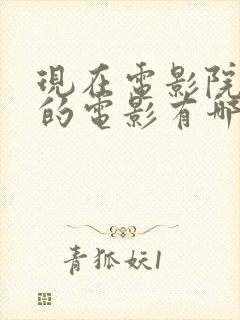 現在電影院
的電影有哪
青狐妖1